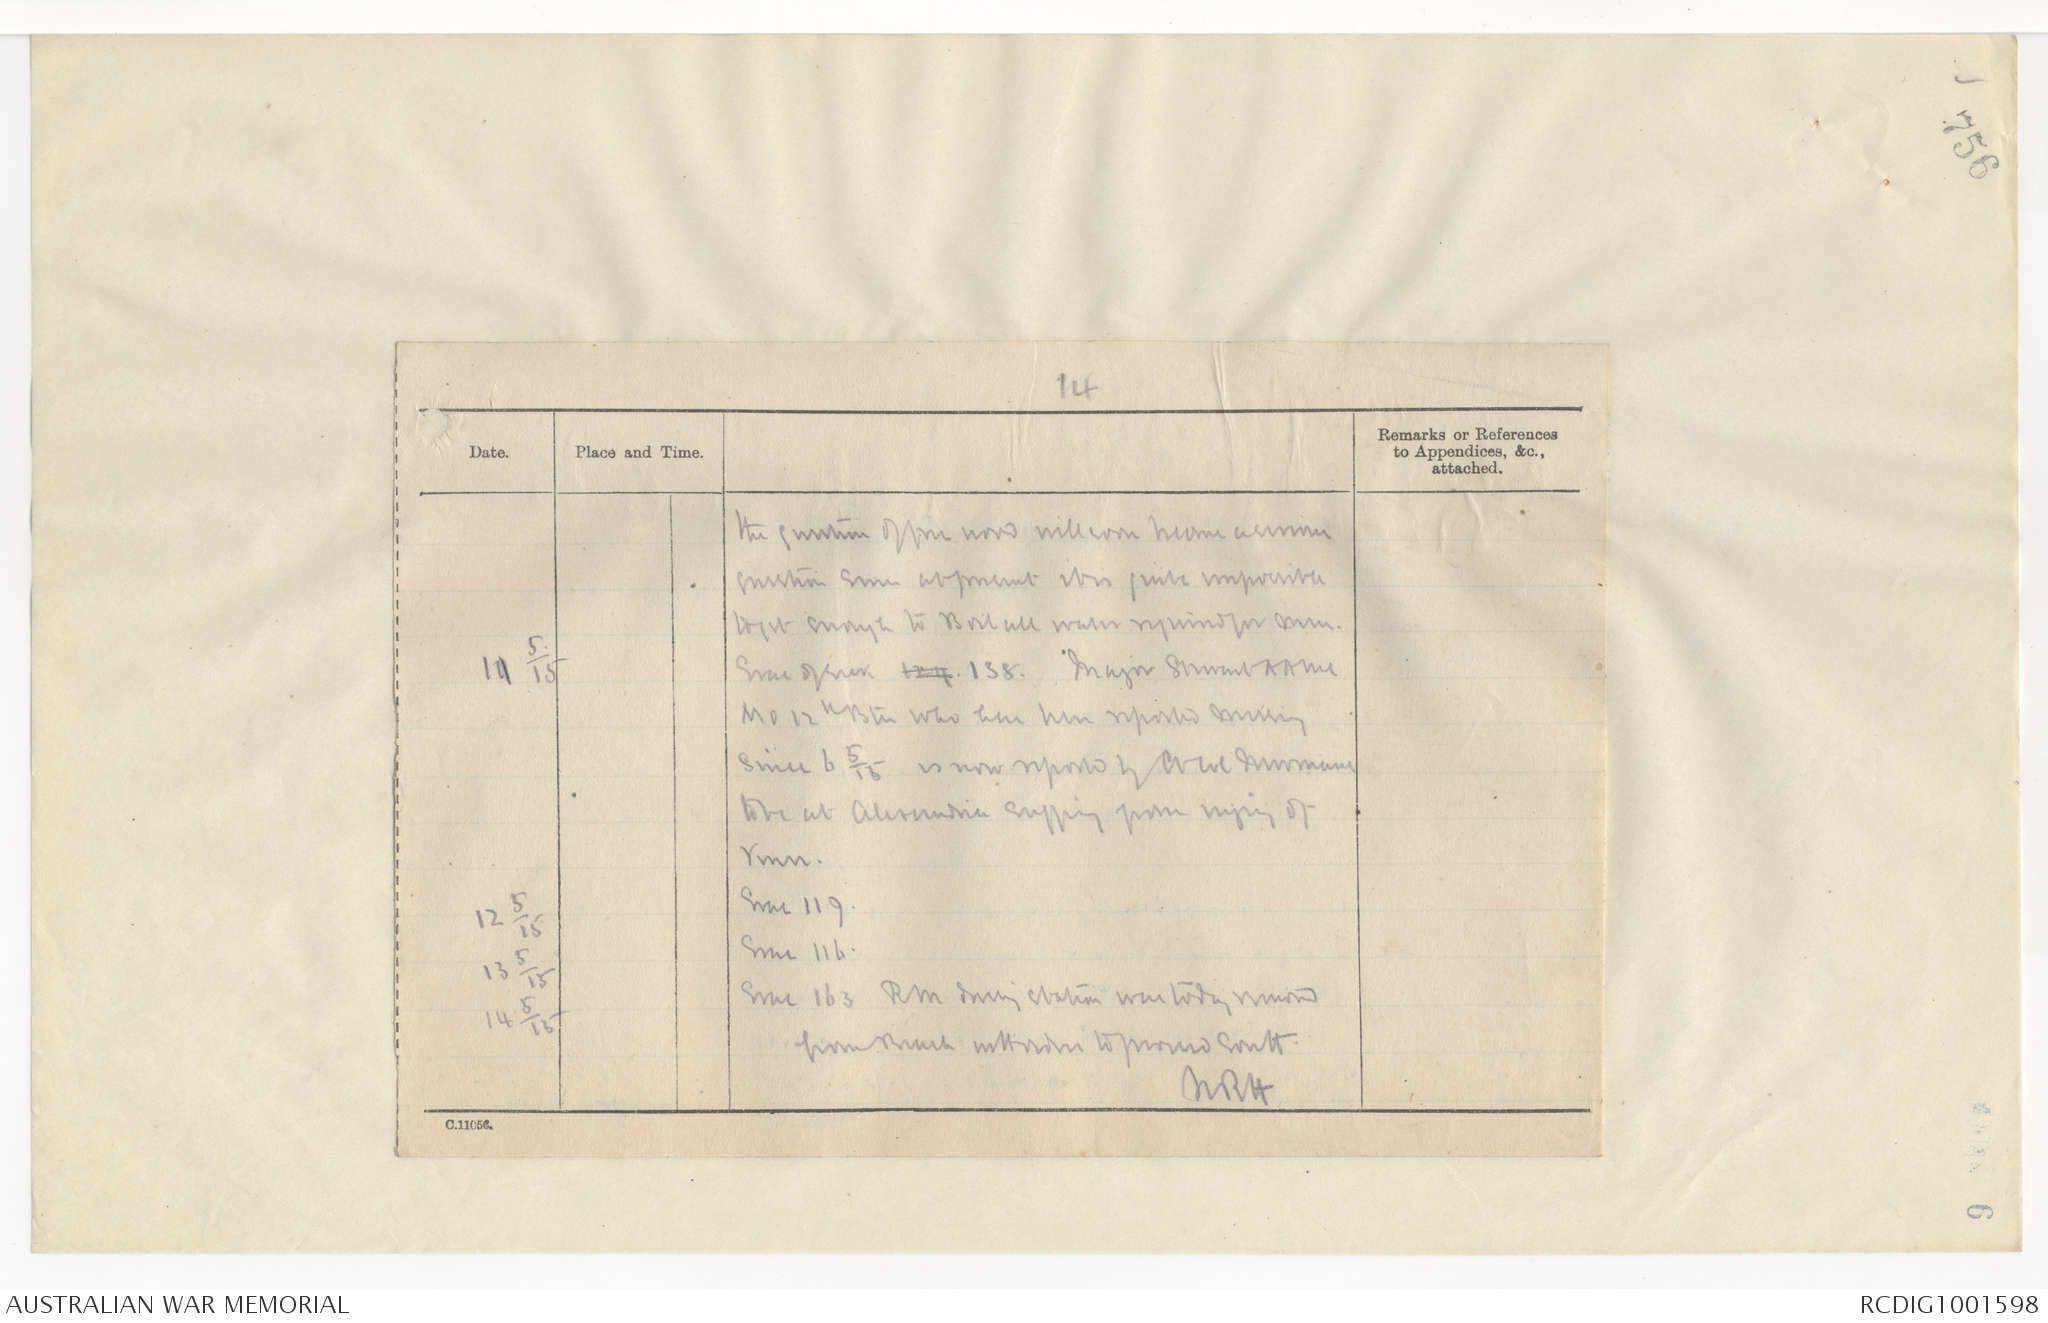 756
14
Date.
Place and Time.
Remarks or References
to Appendices, &c.,
attached.
the question of fire wood will soon become a serious
question since at present it is quite impossible
to get enough to Boil all water required for men.
11 5/15
Evac of sick 138. Major Stewart AAMC
MO 12th Btn who has been reported missing
since 6 5/15 is now reported by
to be at Alexandria suffering from injury of
knee.
12 5/15
Evac 119.
13 5/15
Evac 116.
14 5/15
Evac 163 station was today removed
from Beach to proceed South.
C.11056.
6
AUSTRALIAN WAR MEMORIAL
RCDIG1001598